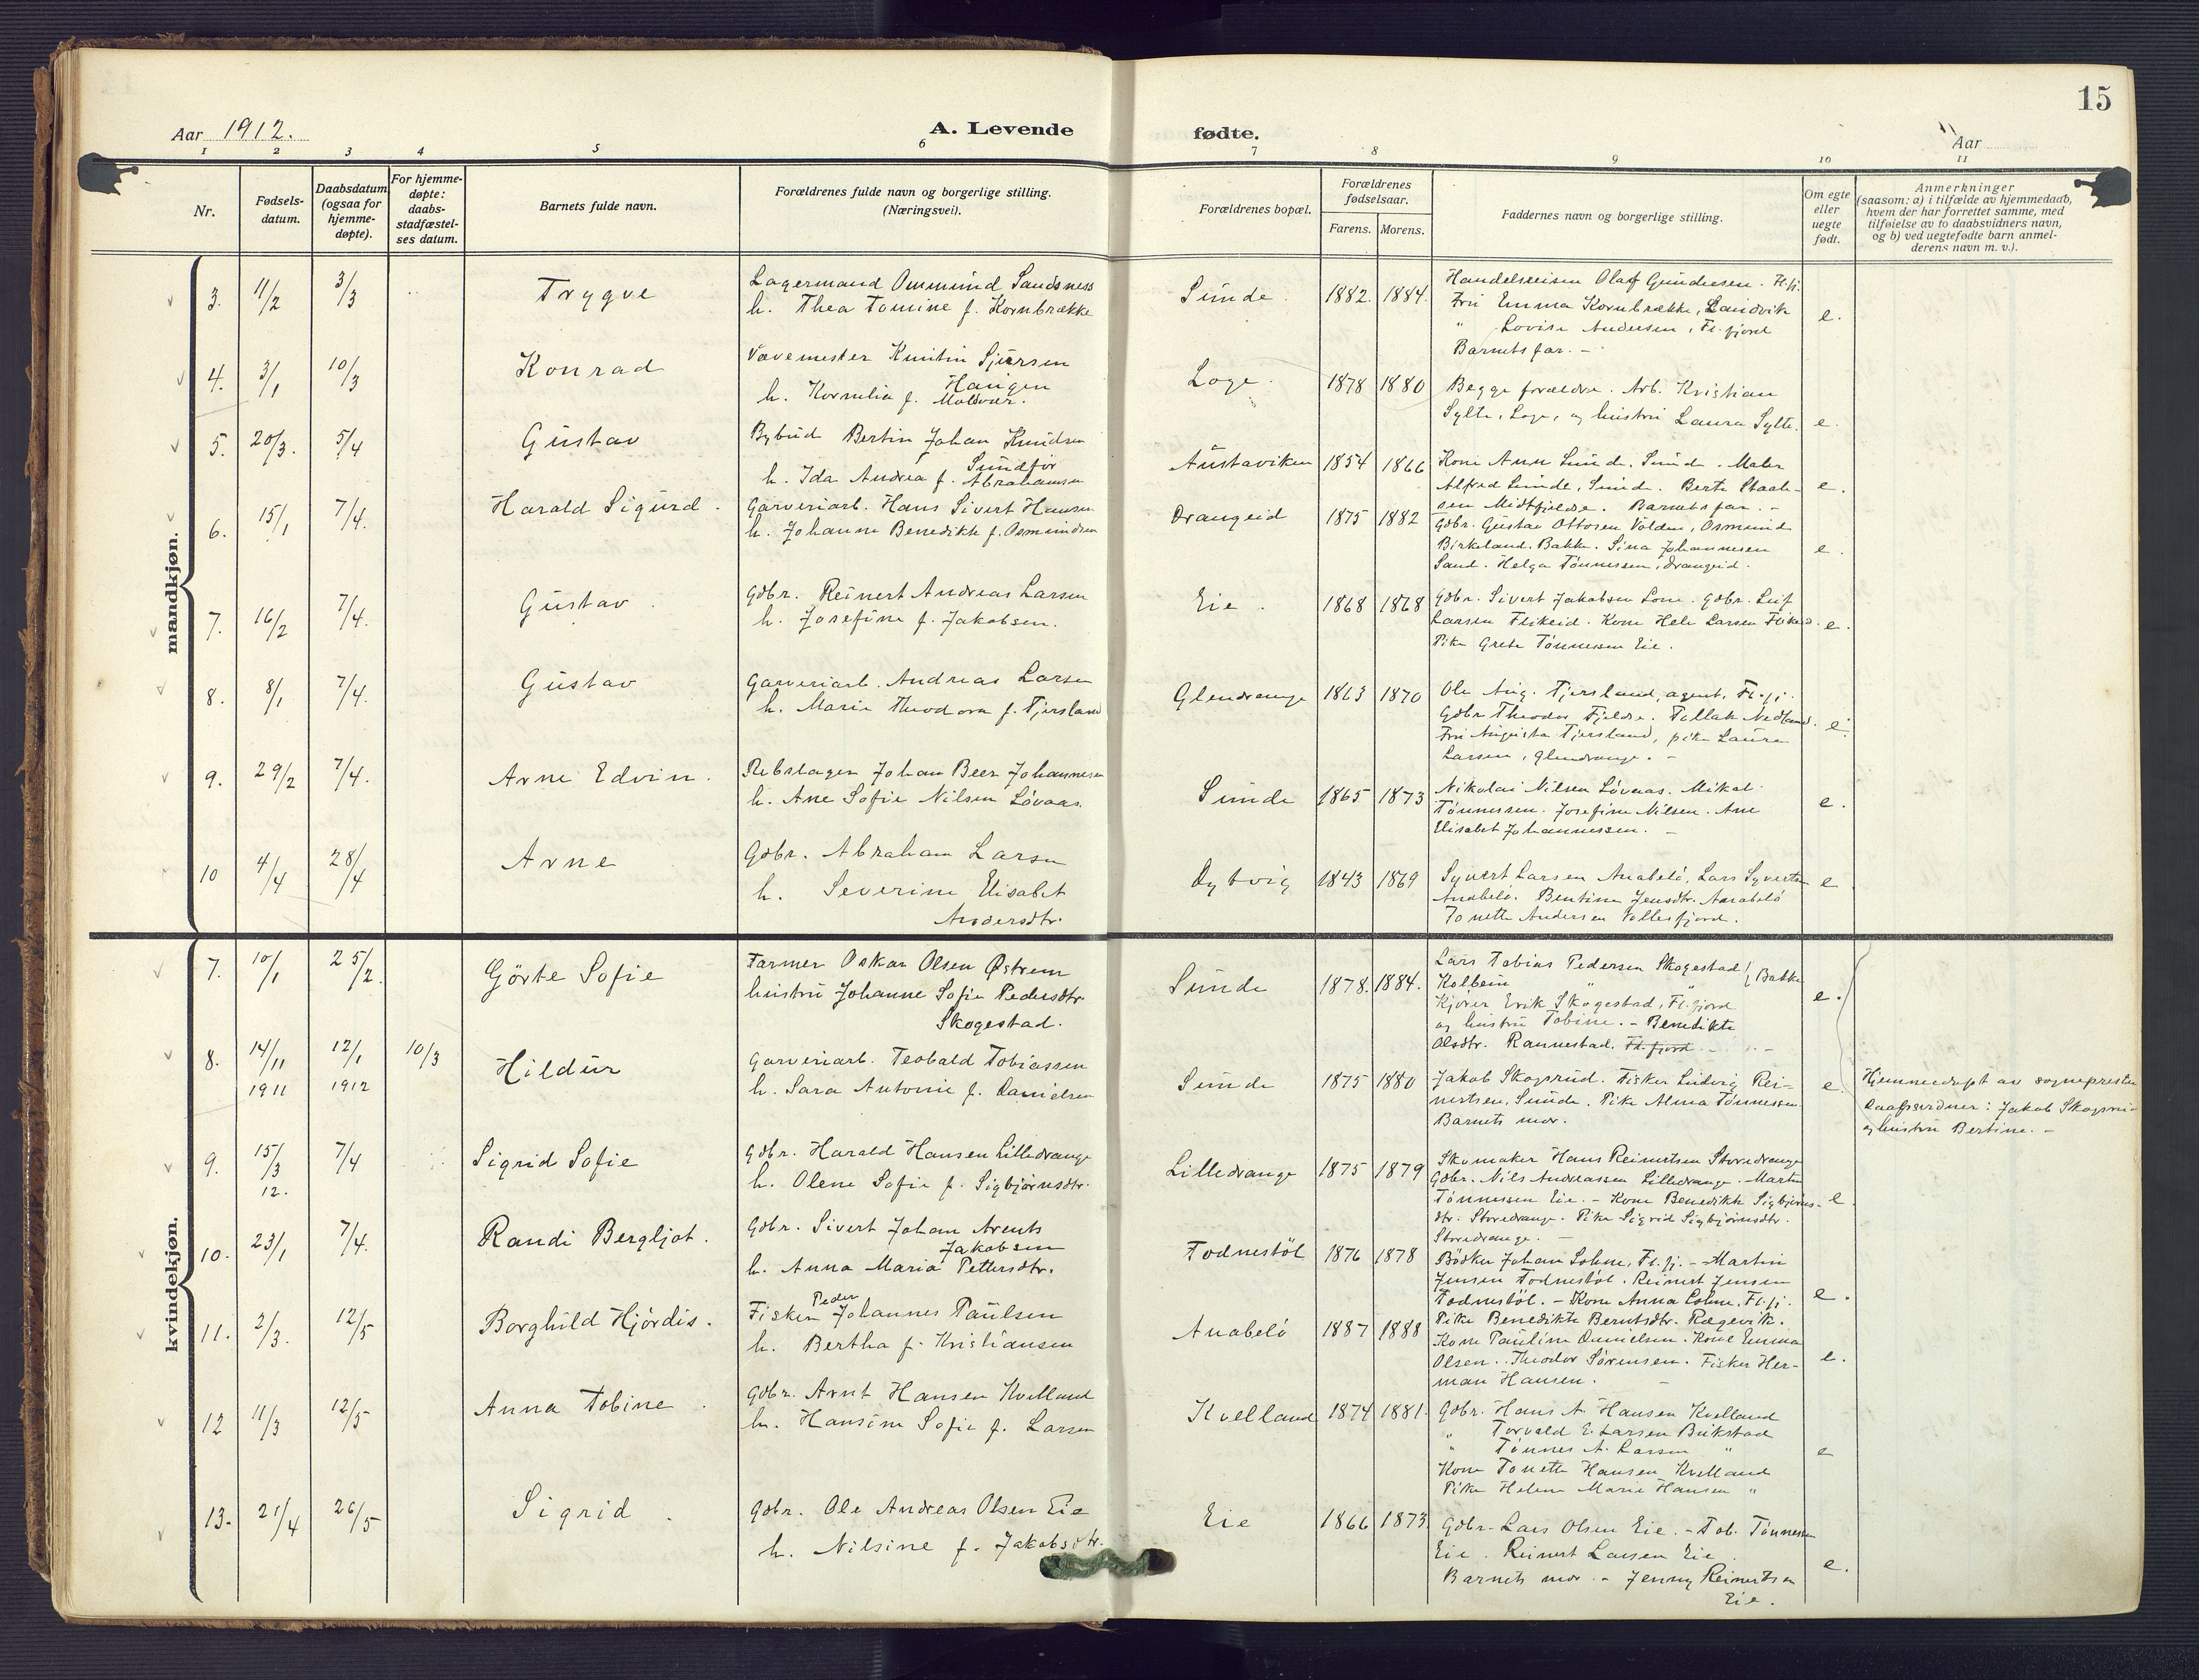 15
Aar 1912.
A. Levende
fødte.
Aar
1 2 3 4 5 6 7 8 9 10 11
Nr.
Fødsels-
datum.
Daabsdatum
(ogsaa for
hjemme-
døpte).
For hjemme-
døpte:
daabs-
stadfæstel-
ses datum.
Barnets fulde navn.
Forældrenes fulde navn og borgerlige stilling.
(Næringsvei).
Forældrenes bopæl.
Forældrenes
fødselsaar.
Farens. Morens.
Faddernes navn og borgerlige stilling.
Om egte
eller
uegte
født.
Anmerkninger
(saasom: a) i tilfælde av hjemmedaab,
hvem der har forrettet samme, med
tilføielse av to daabsvidners navn,
og b) ved uegtefødte barn anmel-
derens navn m. v.).
mandkjøn.
3. 11/2 3/3 Trygve
Lagermand Ommund Sandsness
h. Thea Tomine f. Kornbrække
Sunde. 1882. 1884.
Handelsreisen Olaf Gundersen. Fl.fj.
Fru Emma Kornbrække, Landvik
" Lovise Andersen, Fl.fjord
Barnets far. -
e.
4. 3/1 10/3 Konrad
Vævemester Knutin Sjursen
Haugen
h. Kornelia f. Moldvær.
Loge. 1878 1880
Begge forældre. Arb. Kristian
Sylte, Loge, og hustru Laura Sylte.
e.
5. 20/3. 5/4 Gustav
Bybud Bertin Johan Knudsen
Sundfør
h. Ida Andrea f. Abrahamsen
Austaviken 1854 1866
Kone Ann Sunde, Sunde. Maler
Alfred Sunde, Sunde. Berte Staale-
sen Midtfjeldse. Barnets far. -
e.
6. 15/1 7/4. Harald Sigurd.
Garveriarb. Hans Sivert Hansen
h. Johanne Benedikte f. Osmundsen
Drangeid 1875 1882
Gdbr. Gustav Ottosen Volden, Osmund
Birkeland. Bakke. Sina Johannesen
Sand. Helga Tønnessen, Drangeid.
e.
7. 16/2 7/4. Gustav.
Gdbr. Reinert Andreas Larsen
h. Josefine f. Jakobsen.
Eie. 1868 1868
Gdbr. Sivert Jakobsen Lone. Gdbr. Leif
Larsen Flikeid. Kone Hele Larsen Flikeid.
Pike Grete Tønnessen Eie.
e.
8. 8/1 7/4. Gustav
Garveriarb. Andreas Larsen
h. Marie Theodora f. Tjersland
Glendrange 1863 1870
Ole Aug. Tjersland, agent, Fl.fj.
Gdbr. Theodor Fjeldse. Tollak Nedland.
Fru Augusta Tjersland, pike Laura
Larsen, Glendrange. -
e.
9. 29/2 7/4. Arne Edvin.
Rebslager Johan Beer Johannesen
h. Ane Sofie Nilsen Løvaas.
Sunde 1865 1873
Nikolai Nilsen Løvaas. Mikal
Tønnessen. Josefine Nilsen. Ane
Elisabet Johannessen. -
e.
10 4/4 28/4 Arne
Gdbr. Abraham Larsen
h. Severine Elisabet
Andersdtr.
Dybvig 1843 1869
Syvert Larsen Anabelø, Lars Syvertsen
Anabelø. Bentine Jensdtr. Anabelø
Tonette Andersen Vollesfjord.
e
kvindekjøn.
7. 10/1 25/2. Görte Sofie
Farmer Oskar Olsen Østrem
hustru Johanne Sofie Pedersdtr.
Skogestad.
Sunde 1878. 1884.
Lars Tobias Pedersen Skogestad } Bakke
Kolbein " "
Kjører Erik Skogestad, Fl.fjord
og hustru Tobine. - Benedikte
Olsdtr. Rannestad. Fl.fjord. -
e.
8. 14/11 1911 12/1 1912 10/3 Hildur
Garveriarb. Teobald Tobiassen
h. Sara Antonie f. Danielsen
Sunde 1875 1880
Jakob Skogsrud. Fisker Ludvig Rei-
nertsen, Sunde. Pike Alma Tønnessen
Barnets mor.
e.
Hjemmedøpt av sognepresten
Daabsvidner: Jakob Skogsrud
og hustru Bertine. -
9. 15/3 12. 7/4 Sigrid Sofie
Gdbr. Harald Hansen Lilledrange
h. Olene Sofie f. Sigbjørnsdtr.
Lilledrange 1875 1879
Skomaker Hans Reinertsen Storedrange
Gdbr. Nils Andreassen Lilledrange. Martin
Tønnessen Eie. - Kone Benedikte Sigbjørns-
dtr. Storedrange. Pike Sigrid Sigbjørnsdtr.
Storedrange. -
e.
10. 23/1 7/4. Randi Bergljot.
Gdbr. Sivert Johan Arents
Jakobsen
h. Anna Maria Pettersdtr.
Todnestöl 1876 1878
Bödker Johan Lohne, Fl.fj. - Martin
Jensen Todnestöl. Reinert Jensen
Todnestöl. - Kone Anna Lohne, Fl.fj.
Pike Benedikte Berntsdtr. Rægevik.
e.
11. 2/3. 12/5 Borghild Hjördis.
Peder
Fisker Johannes Paulsen
h. Bertha f. Kristiansen
Anabelö 1887 1888
Kone Pauline Danielsen. Kone Emma
Olsen. Theodor Sørensen. Fisker Her-
man Hansen. -
e.
12 11/3 12/5 Anna Tobine.
Gdbr. Arnt Hansen Kvelland
h. Hansine Sofie f. Larsen
Kvelland 1874 1881.
Gdbr. Hans A. Hansen Kvelland
" Torvald E. Larsen Birkstad
" Tønnes A. Larsen "
Kone Tonette Hansen Kvelland
Pike Helene Marie Hansen "
e
13. 21/4 26/5 Sigrid.
Gdbr. Ole Andreas Olsen Eie
h. Nilsine f. Jakobsdtr.
Eie 1866 1873
Gdbr. Lars Olsen Eie. - Tob. Tønnessen
Eie. Reinert Larsen Eie.
Barnets mor. - Jenny Reinertsen
Eie.
e.